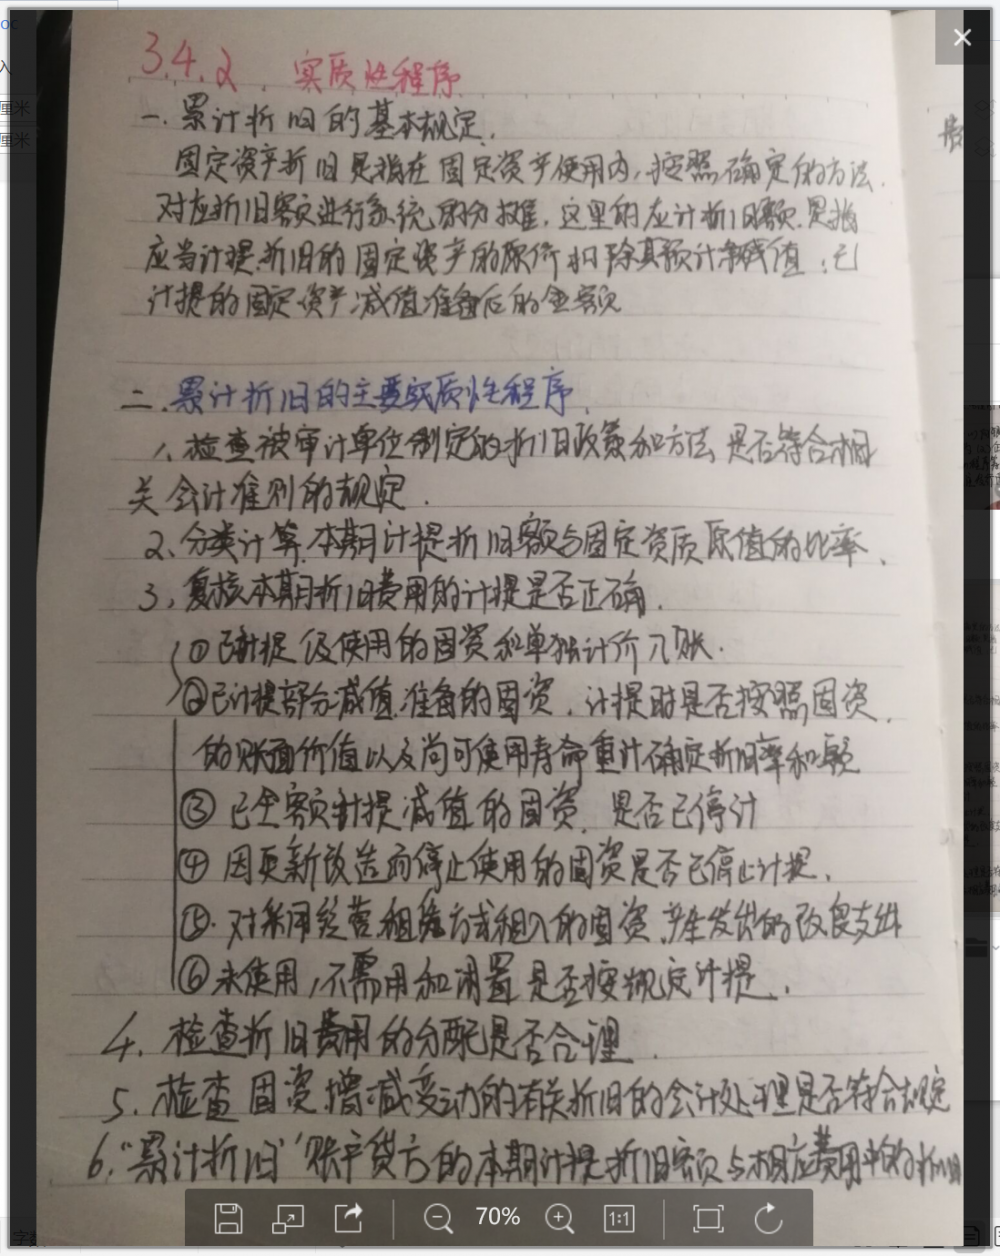 3.4.2 实质性程序
一.累计折旧的基本规定.
固定资产折旧是指在固定资产使用内,按照确定的方法.
对应折旧额进行系统的分摊,这里的应计折旧额.是指
应当计提折旧的固定资产的原价扣除其预计净残值,已
计提的固定资产减值准备后的金额
二.累计折旧的主要实质性程序.
1、检查被审计单位制定的折旧政策和方法,是否符合相
关会计准则的规定.
2、分类计算.本期计提折旧额与固定资质原值的比率、
3、复核本期折旧费用的计提是否正确.
①已计提仍使用的固资和单独计价入账.
②已计提部分减值准备的固资.计提时是否按照固资.
的账面价值以及尚可使用寿命重计确定折旧率和额
③已全额计提减值的固资,是否已停计
④因更新改造而停止使用的固资是否已停止计提.
⑤.对采用经营租赁方式租入的固资,产生发出的改良支出
⑥未使用,不需用和闲置是否按规定计提.
4.检查折旧费用的分配是否合理.
5.检查固资增减变动的有关折旧的会计处理是否符合规定
6."累计折旧"账户贷方的本期计提折旧额与相应费用中的折旧
70%
1:1
厘米
厘米